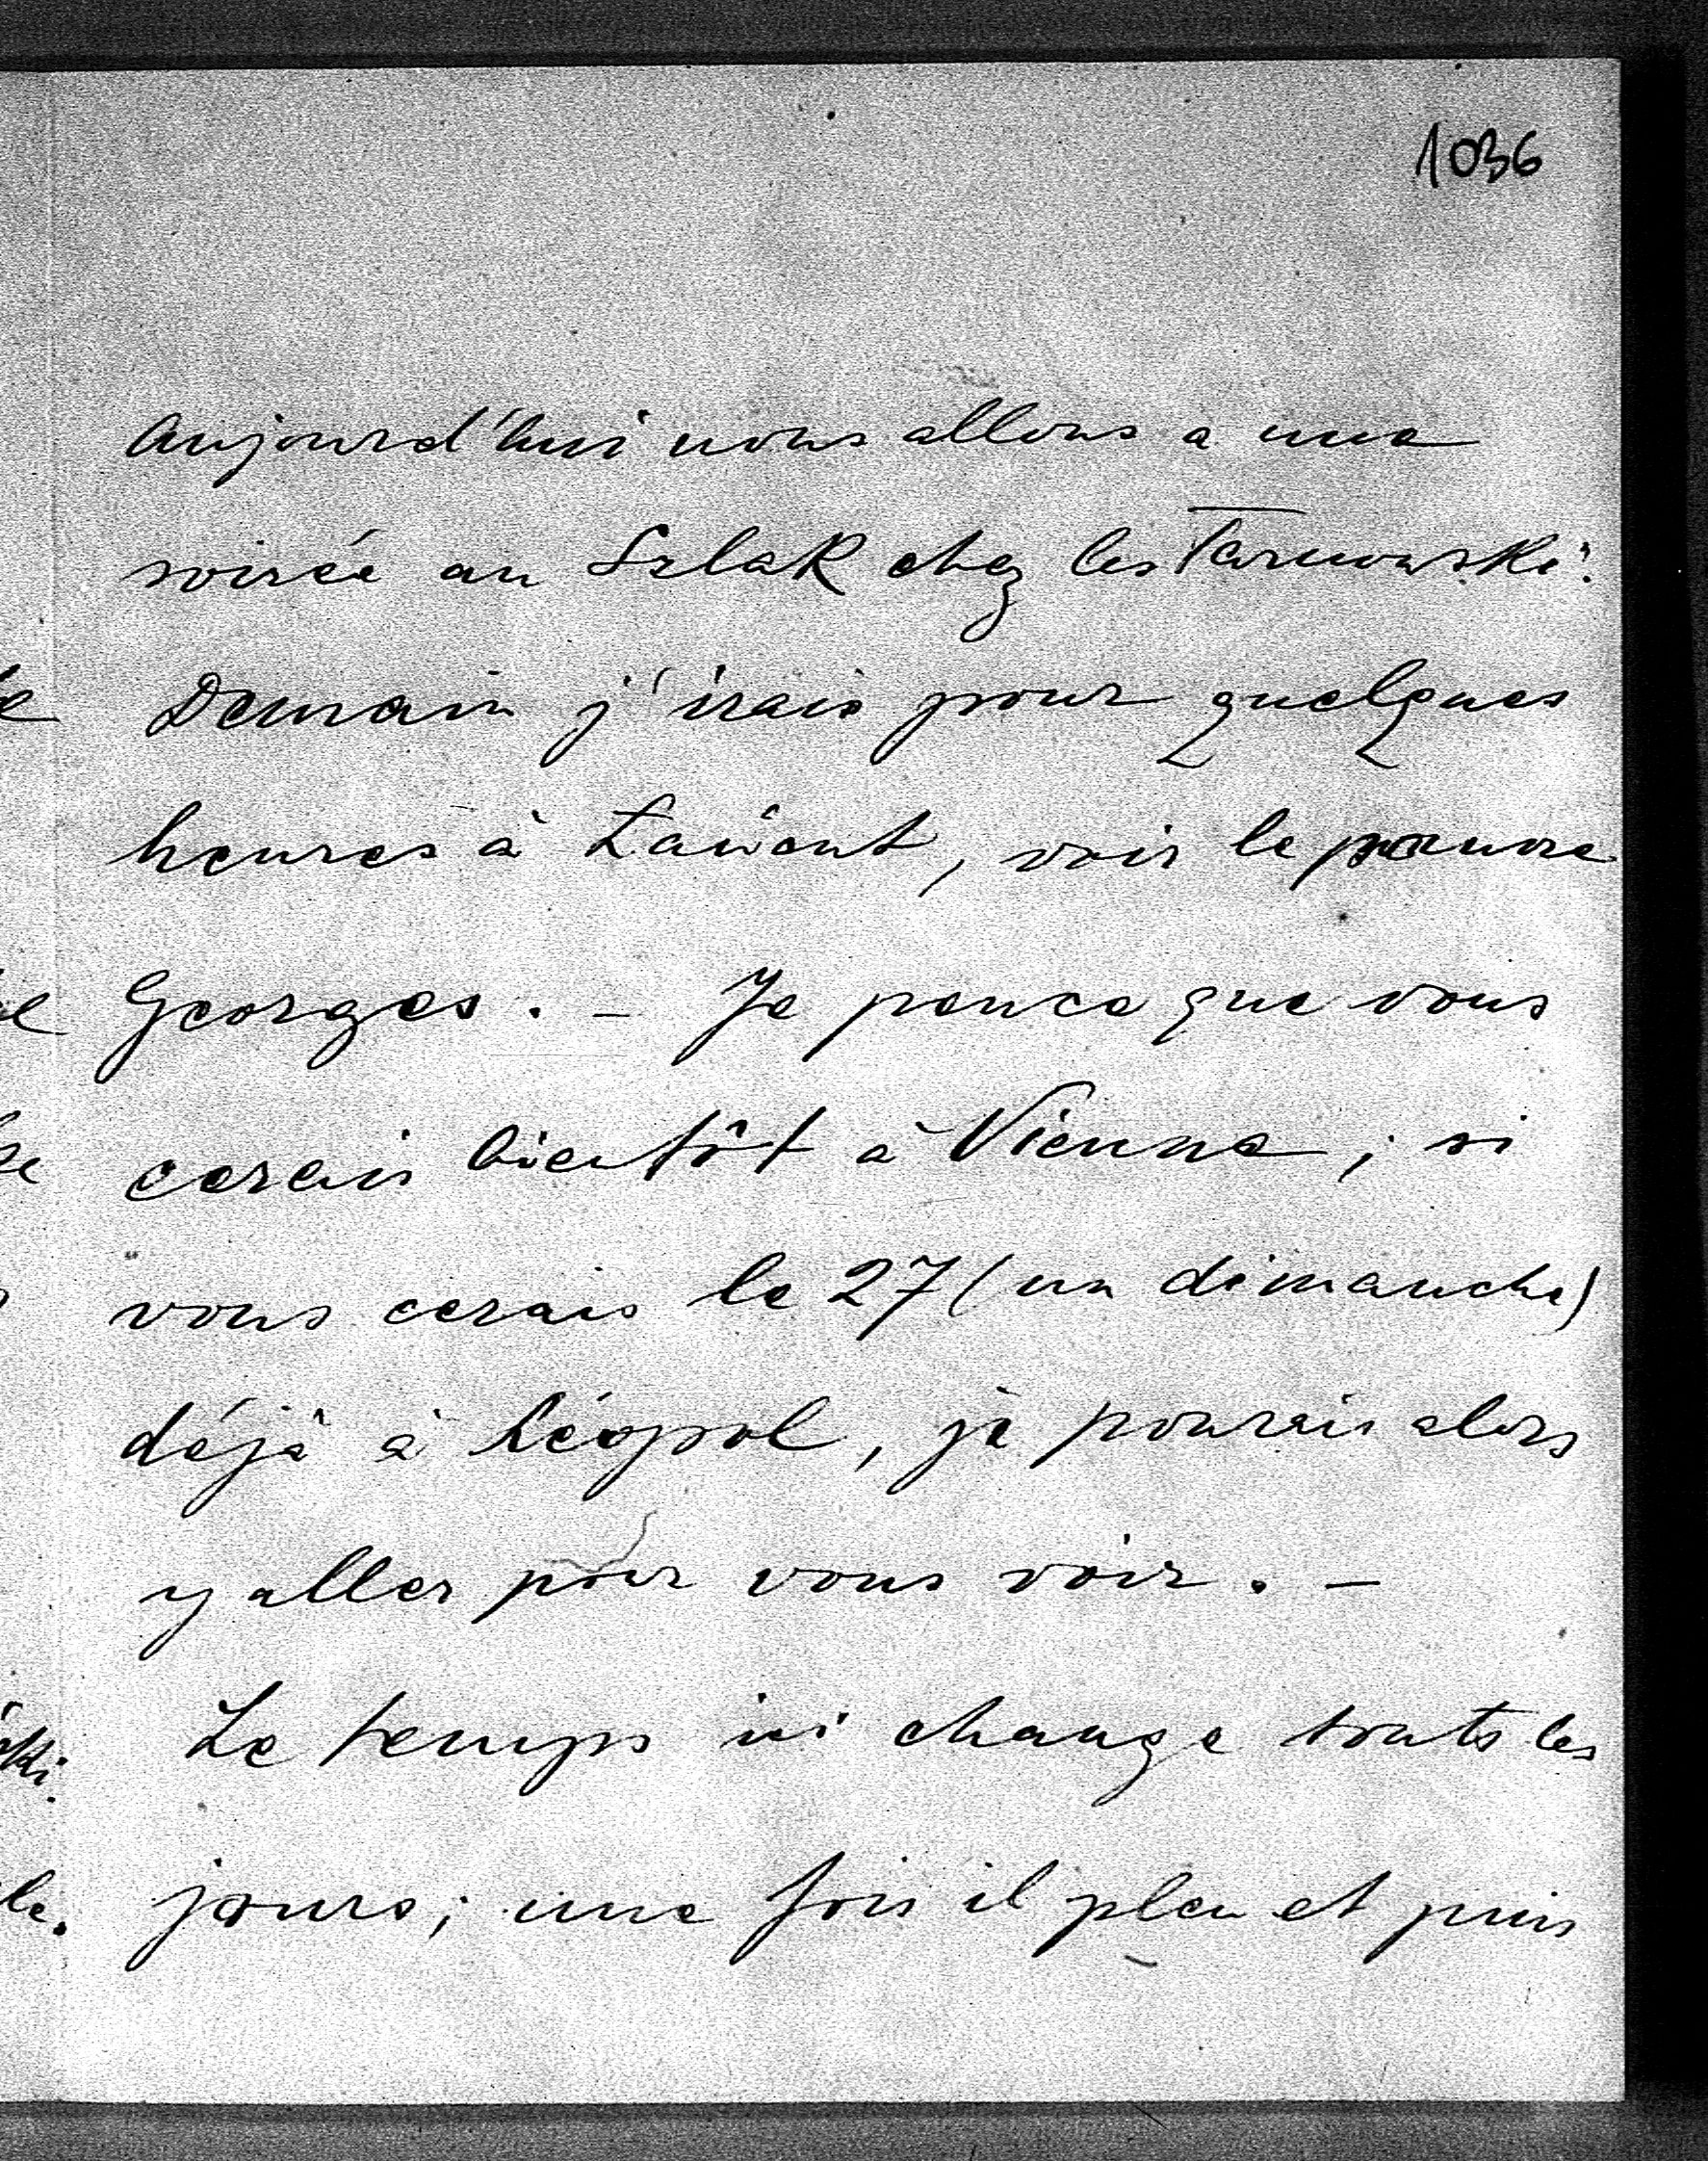 1036
Aujourd'hui nous allons a une
soirée au Szlak chez les Tarnowski.
Demain j'irais pour quelques
heures à Łańcut, voir le pauvre
Georges. – Je pence que vous
cerais bientôt à Vienne ; si
vous cerais le 27 (un dimanche)
déjà à Léopol, je pourais alors
y aller pour vous voir. –
Le temps ici change touts les
jours ; une fois il pleu et puis